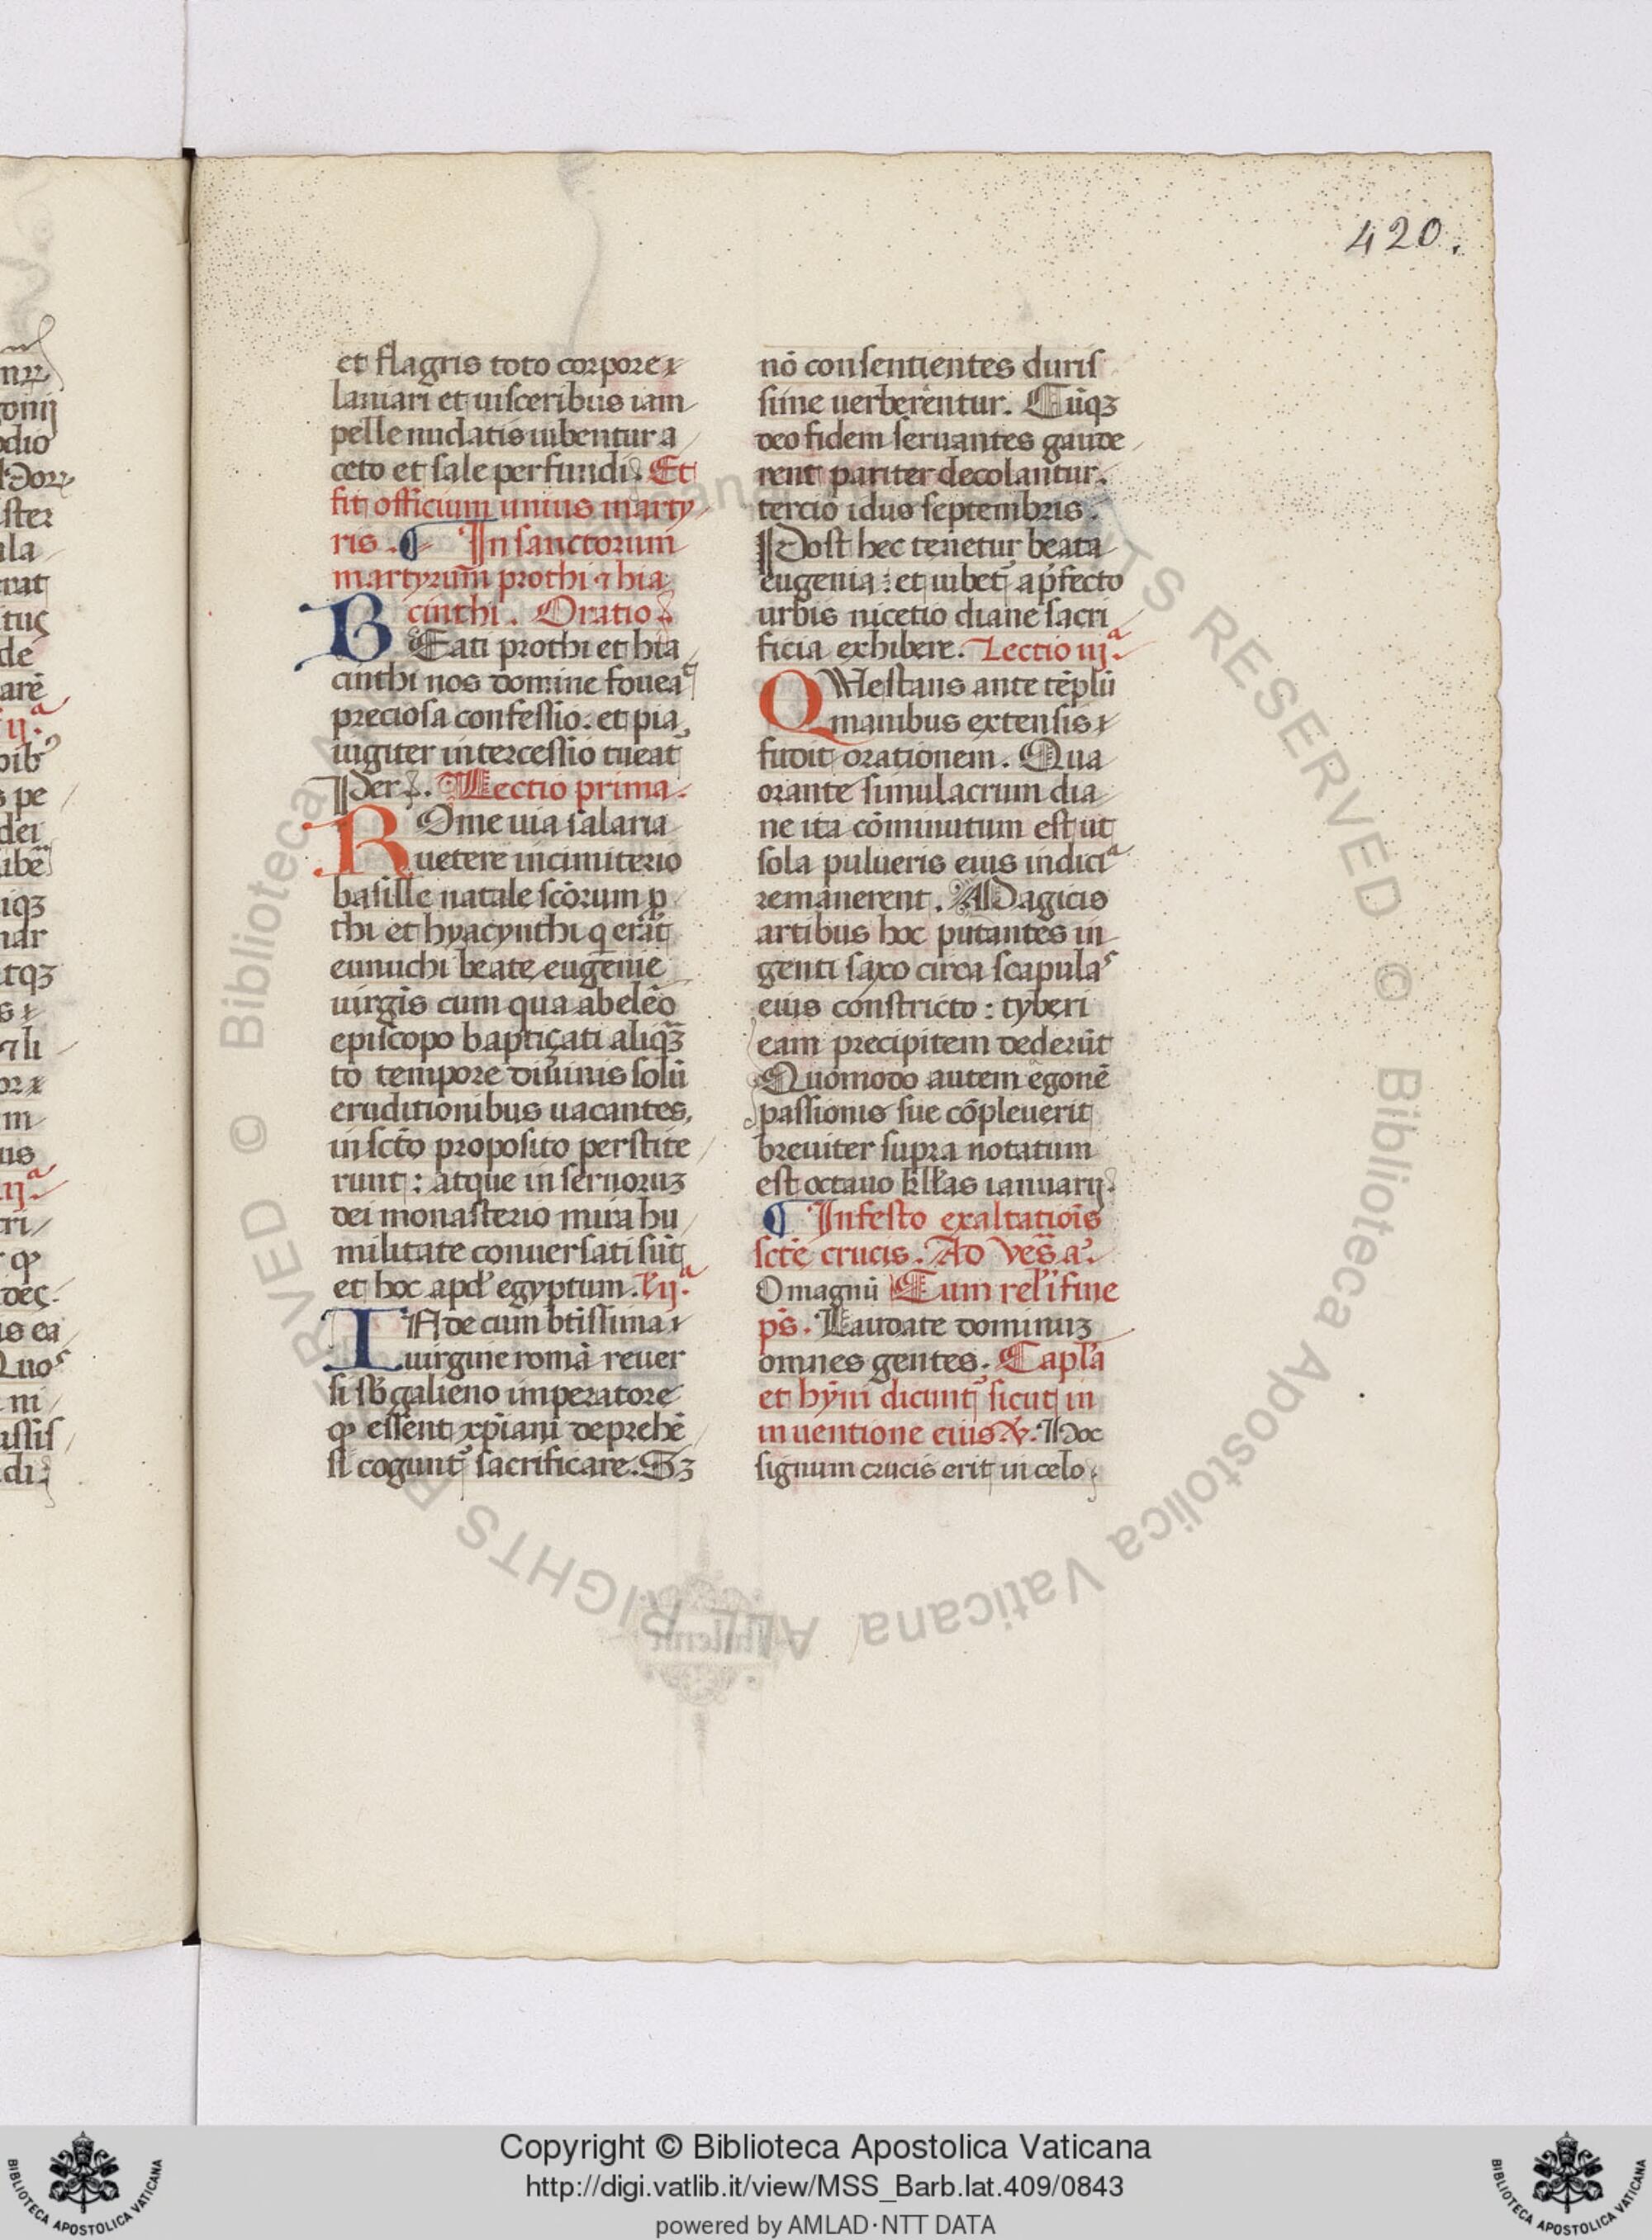 420.
et flagris toto corpore
laniari et uisceribus iam
pelle nudatis iubentur a
ceto et sale perfundi. Et
fit officium unius marty
ris. ¶ In sanctorum
martyrum̄ prothi ⁊ hia
cinthi. Oratio
BEati prothi et hia
cinthi nos domine fouea
preciosa confessio. et pia
iugiter intercessio tueat᷑
Per. Lectio prima.
ROme uia salaria
uetere in cimiterio
basille natale sc̄orum p
thi et hyacynthi q erāt
eunuchi beate eugenie
uirgīs cum qua ab elēo
episcopo baptiçati aliqꝫ
to tempore diuinis solū
eruditionibus uacantes,
in sc̄to proposito perstite
runt: atque in seruoruꝫ
dei monasterio mira hu
militate conuersati sūt
et hoc apd̓ egyptum. L̓ ij.ª
INde cum bt̄issima
uirgine romā reuer
si sb̓ galieno imperatore
ꝙ essent xp̄iani deprehē
si cogunt᷑ sacrificare. Sꝫ
nō consentientes duris
sime uerberentur. Cūqꝫ
deo fidem seruantes gaude
rent pariter decolantur.
tercio idus septembris.
Post hec tenetur beata
eugenia: et iubet᷑ a p̄fecto
urbis nicetio diane sacri
ficia exhibere. Lectio iij.ª
QUe stans ante tēplū
manibus extensis
fudit orationem. Qua
orante simulacrum dia
ne ita cōminutum est ut
sola pulueris eius indiciª
remanerent. Magicis
artibus hoc putantes in
genti saxo circa scapulas
eius constricto: tyberi
eam precipitem dederūt
Quomodo autem egonē
passionis sue cōpleuerit
breuiter supra notatum
est octauo kl̄las ianuarij.
¶ In festo exaltatiōis
sctē crucis. Ad ves̄ a.
O magnū Cum rel̓ i fine
ps̄. Laudate dominuꝫ
omnes gentes. Capl̓a
et hȳni dicunt᷑ sicut in
inuentione eius ℣. Hoc
signum crucis erit in celo.
Copyright © Biblioteca Apostolica Vaticana
http://digi.vatlib.it/view/MSS_Barb.lat.409/0843
powered by AMLAD·NTT DATA